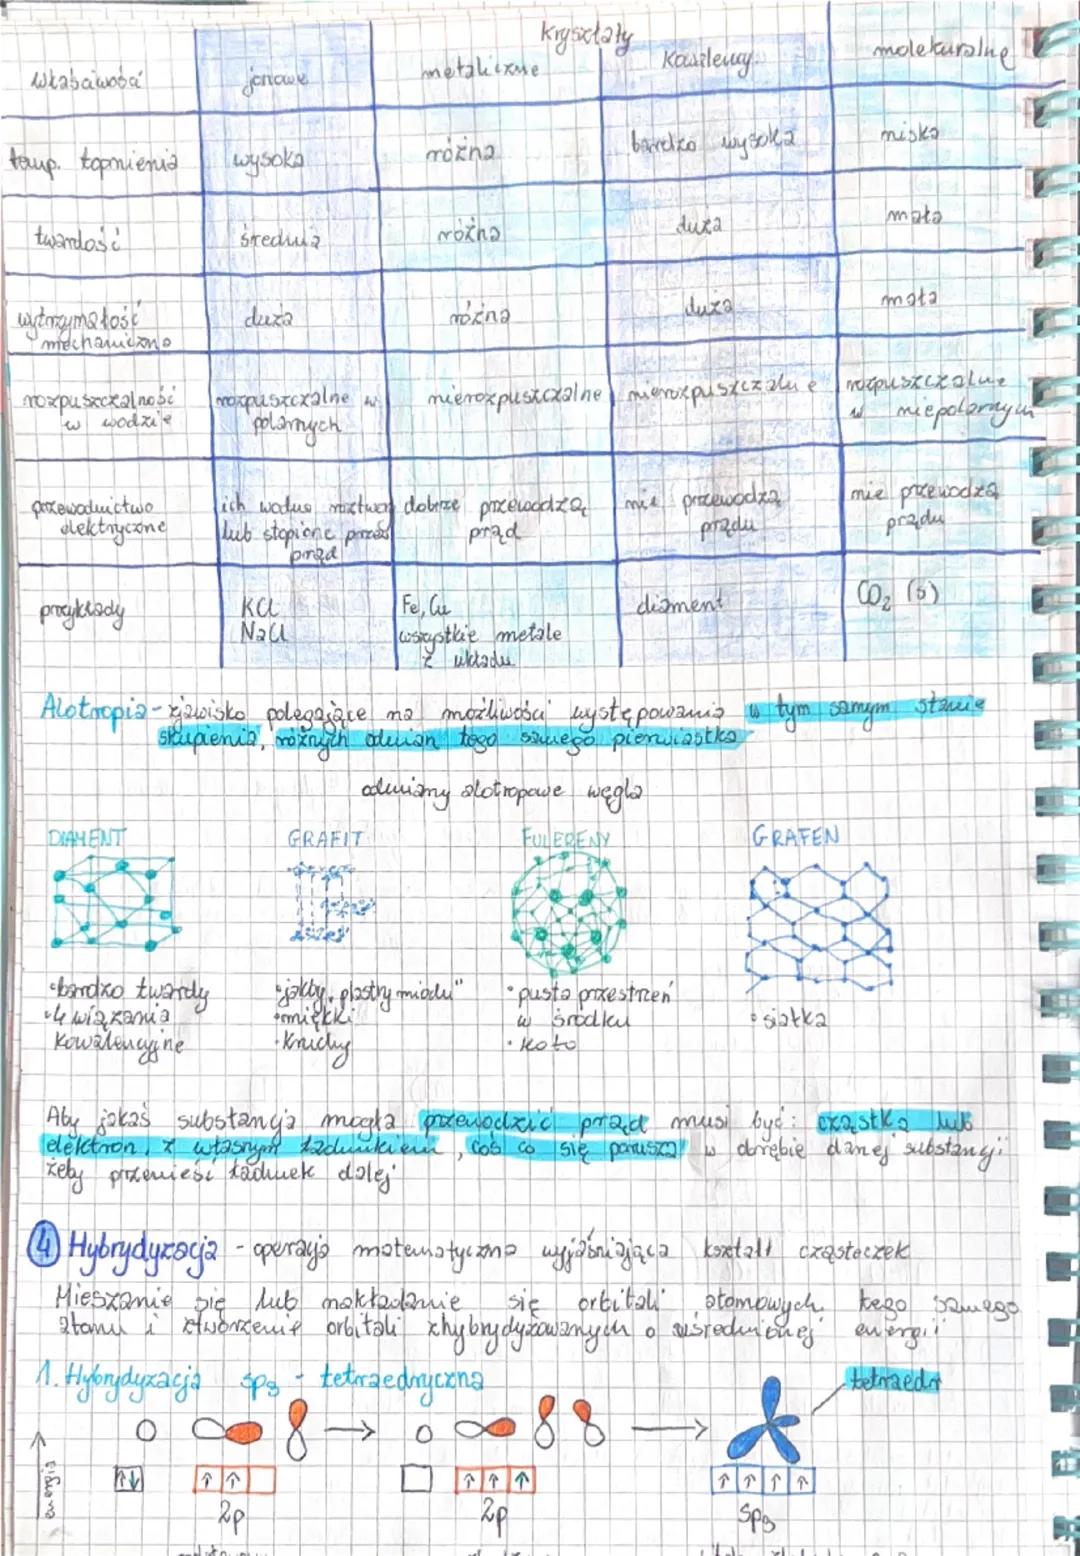 kryształy
właściwość jonowe metaliczne molekularne
temp. topnienia wysoka różna bardzo wysoka niska
twardość średnia różna duża mała
wytrzymałość mechaniczna duża różna duża mała
rozpuszczalność w wodzie rozpuszczalne w polarnych nierozpuszczalne nierozpuszczalne rozpuszczalne w niepolarnych
przewodnictwo elektryczne ich wodne roztwory lub stopione prąd dobrze przewodzą prąd nie przewodzą prądu nie przewodzą prądu
przykłady KCl NaCl Fe, Cu wszystkie metale z układu diament CO₂ (s)
Alotropia - zjawisko polegające na możliwości występowania w tym samym stanie
skupienia, różnych odmian tego samego pierwiastka
odmiany alotropowe węgla
DIAMENT GRAFIT FULERENY GRAFEN
• bardzo twardy
• 4 wiązania
kowalencyjne
• jakby „plastry miodu"
• miękki
• kruchy
• pusta przestrzeń
w środku
• koło
• siatka
Aby jakaś substancja mogła przewodzić prąd musi być: cząstka lub
elektron, z własnym ładunkiem, coś co się porusza w obrębie danej substancji
żeby przenieść ładunek dalej
4 Hybrydyzacja - operacja matematyczna wyjaśniająca kształt cząsteczek
Mieszanie się lub nakładanie się orbitali atomowych tego samego
atomu i stworzenie orbitali zhybrydyzowanych o uśrednionej energii
1. Hybrydyzacja sp₃ - tetraedryczna
tetraedr
energia
2p 2p sp₃